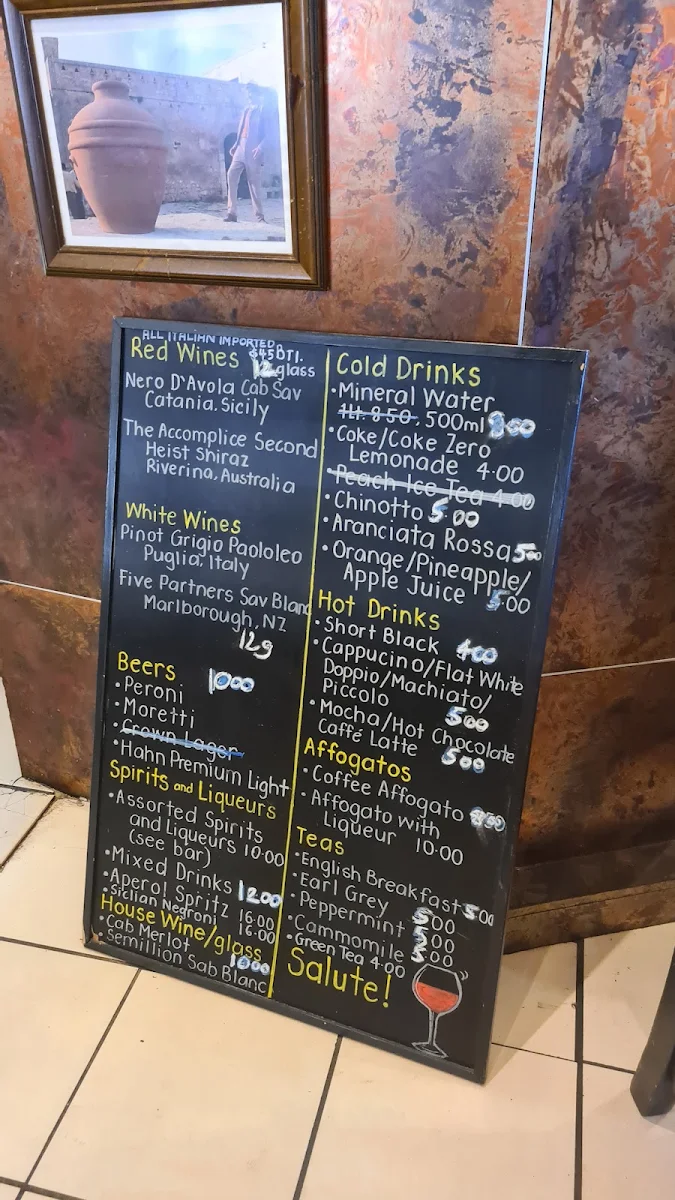 ALL ITALIAN IMPORTED
Red Wines $45BTL.
12 glass
Nero D'Avola Cab Sav
Catania, Sicily
The Accomplice Second
Heist Shiraz
Riverina, Australia
White Wines
Pinot Grigio Paololeo
Puglia, Italy
Five Partners Sav Blanc
Marlborough, NZ
12g
Beers 10 00
• Peroni
• Moretti
• Crown Lager
• Hahn Premium Light
Spirits and Liqueurs
• Assorted Spirits
and Liqueurs 10.00
(see bar)
• Mixed Drinks 12 00
• Aperol Spritz 16.00
• Sicilian Negroni 16.00
House Wine/glass
• Cab Merlot 10 00
• Semillion Sab Blanc
Cold Drinks
• Mineral Water
1Lt. 8.50, 500ml
• Coke/Coke Zero
Lemonade 4.00
• Peach Ice Tea 4.00
• Chinotto 5.00
• Aranciata Rossa 5.00
• Orange/Pineapple/
Apple Juice 5.00
Hot Drinks
• Short Black 4 00
• Cappucino/Flat White
Doppio/Machiato/
Piccolo 5 00
• Mocha/Hot Chocolate
Caffé Latte 5 00
Affogatos
• Coffee Affogato 8 00
• Affogato with
Liqueur 10.00
Teas
• English Breakfast 5 00
• Earl Grey 5 00
• Peppermint 5 00
• Cammomile 5 00
• Green Tea 4.00
Salute!